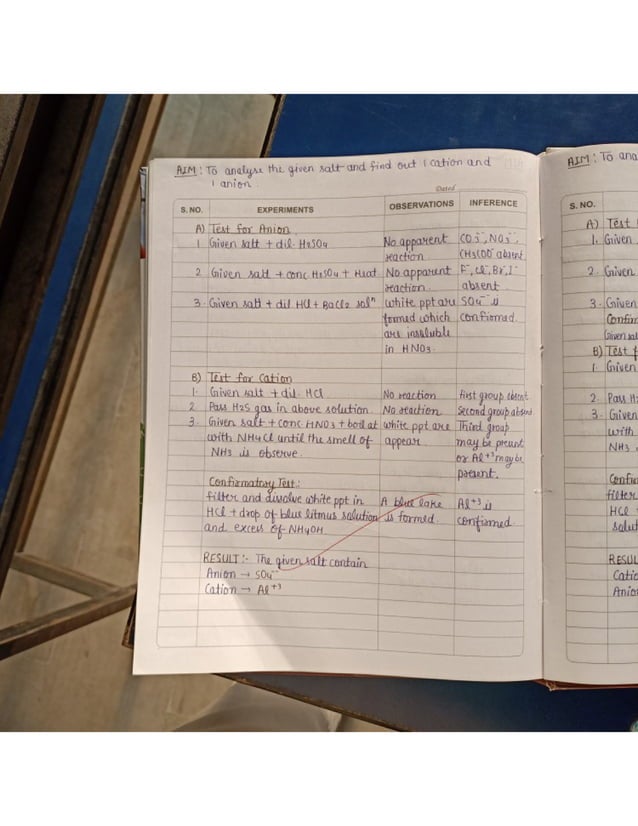 AIM : To analyse the given salt and find out 1 cation and
1 anion.
Dated
S. NO. EXPERIMENTS OBSERVATIONS INFERENCE
A) Test for Anion.
1. Given salt + dil. H2SO4 No apparent CO3--, NO2-,
reaction CH3COO- absent.
2. Given salt + conc. H2SO4 + Heat. No apparent F-, Cl-, Br-, I-
reaction. absent.
3. Given salt + dil HCl + BaCl2 solⁿ white ppt are SO4-- is
formed which confirmed.
are insoluble
in HNO3.
B) Test for Cation
1. Given salt + dil. HCl No reaction First group absent.
2. Pass H2S gas in above solution. No reaction Second group absent.
3. Given salt + conc. HNO3 + boil at white ppt are Third group
with NH4Cl until the smell of appear. may be present
NH3 is observe. or Al+3 may be
present.
Confirmatory Test:
filter and dissolve white ppt in A blue lake Al+3 is
HCl + drop of blue litmus solution is formed. confirmed.
and excess of NH4OH
RESULT :- The given salt contain
Anion → SO4--
Cation → Al+3
AIM : To ana
S. NO.
A) Test
1. Given
2. Given
3. Given
Confir
Given sal
B) Test f
1. Given
2. Pass H2
3. Given
with
NH3
Confir
filter
HCl +
solut
RESUL
Catio
Anio